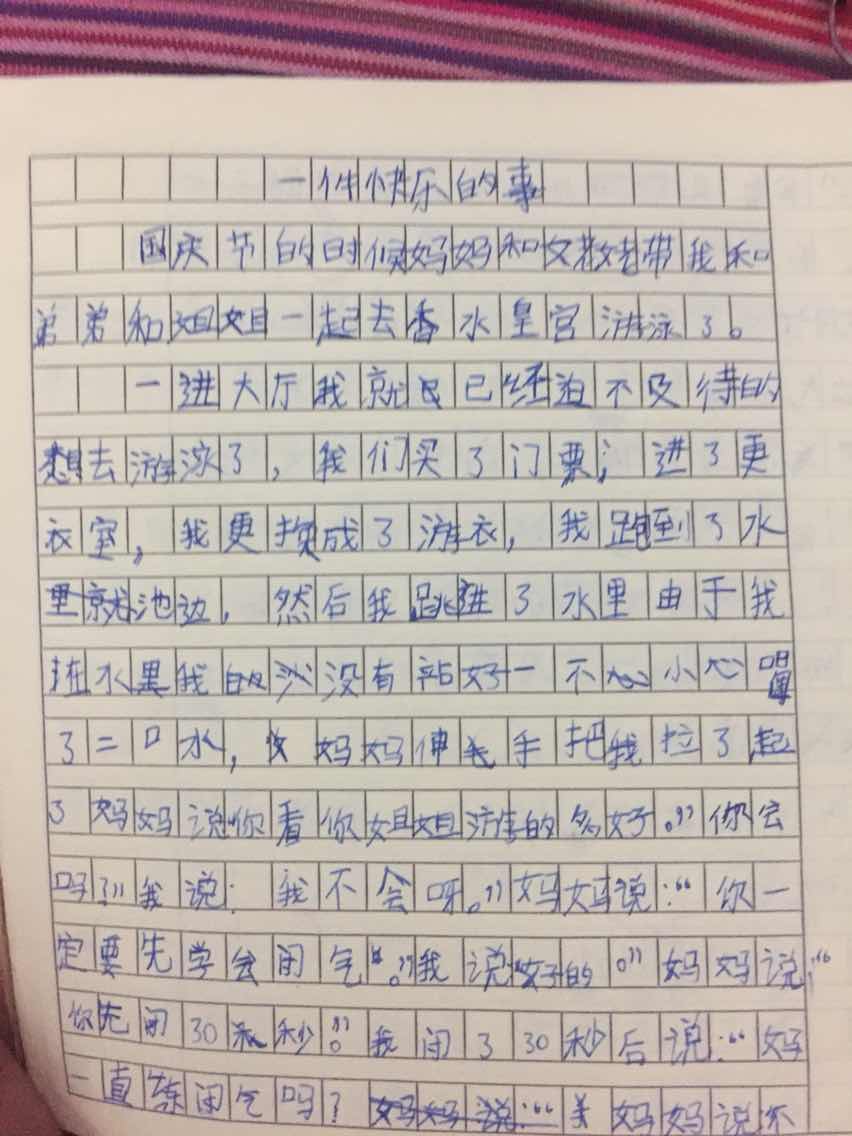 一件快乐的事
国庆节的时候妈妈和文教老带我和
弟弟和姐姐一起去香水皇宫游泳了。
一进大厅我就已经迫不及待的
想去游泳了，我们买了门票，进了更
衣室，我更换成了游衣，我跑到了水
里就池边，然后我跳进了水里由于我
在水里我的没有站好一不心小心
了二口水，妈妈伸手把我拉了起
了妈妈说你看你姐姐游的多好。”你会
吗？”我说：我不会呀。”妈妈说：“你一
定要先学会闭气。”我说“好的。”妈妈说：“
你先闭30秒。”我闭了30秒后说：“妈
一直练闭气吗？妈妈说：“妈妈说不